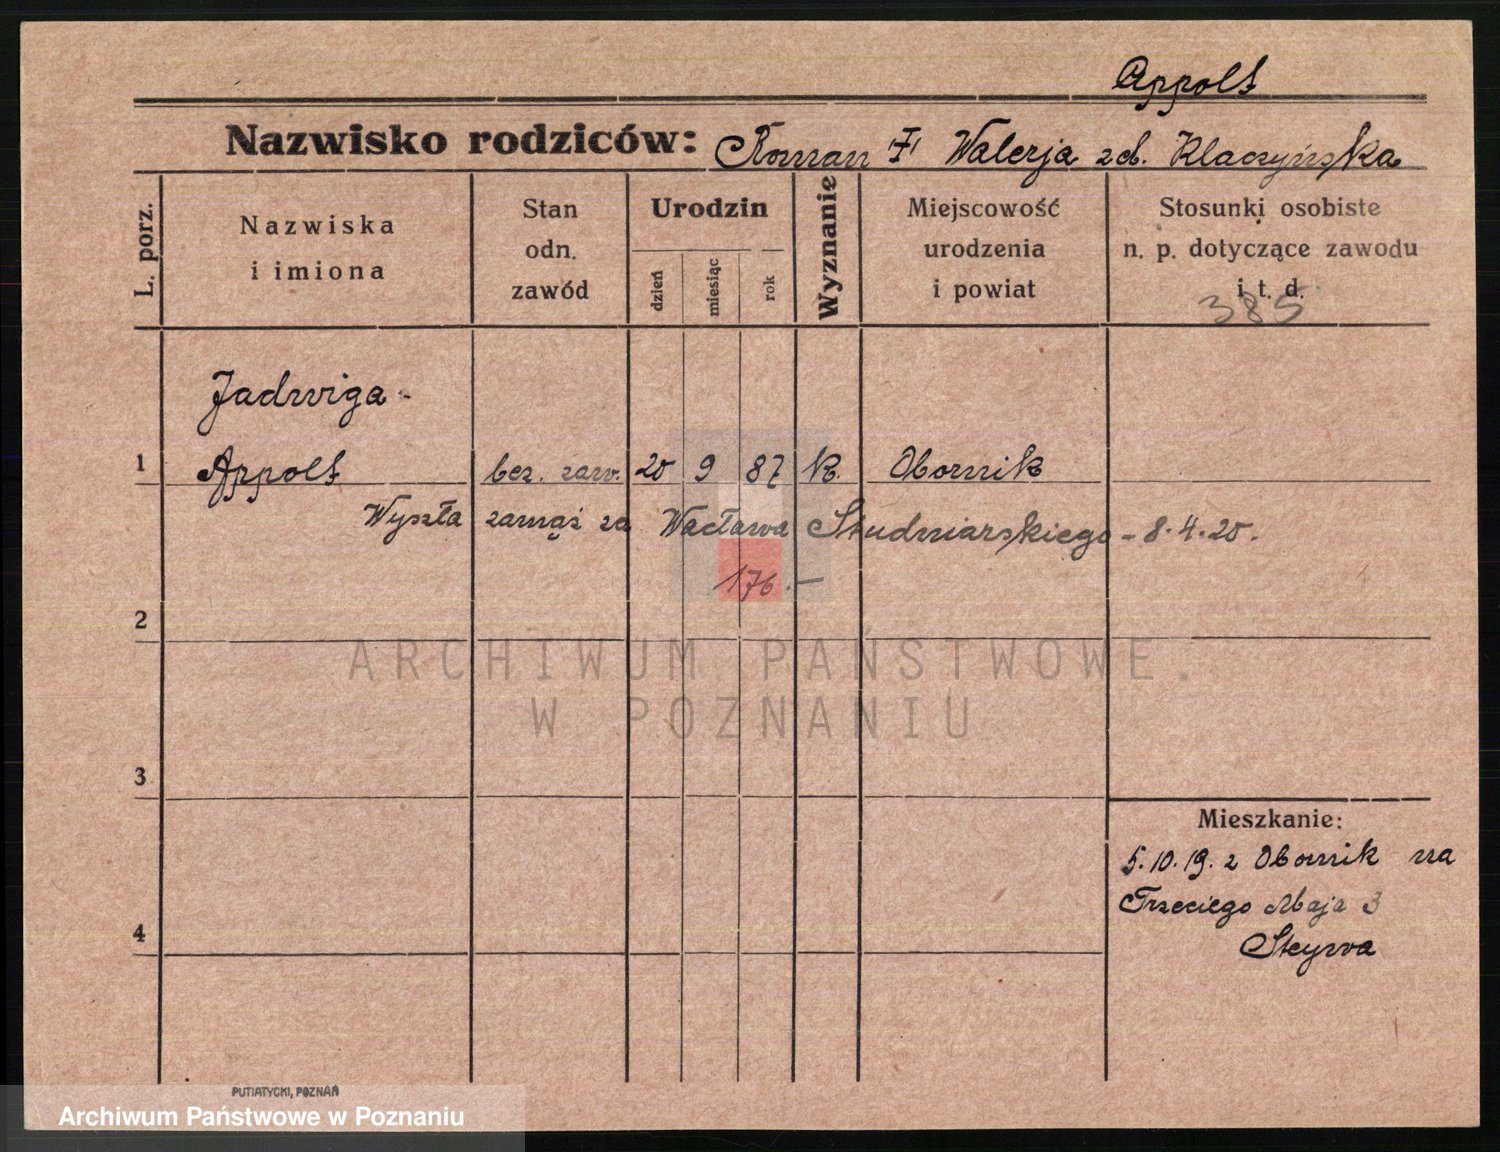 Appolt
Nazwisko rodziców: Roman i Walerja zd. Klaczyńska
L. porz.
Nazwiska i imiona
Stan odn. zawód
Urodzin
dzień
miesiąc
rok
Wyznanie
Miejscowość urodzenia i powiat
Stosunki osobiste n. p. dotyczące zawodu i t. d.
385
Jadwiga
1 Appolt bez. zaw. 20 9 87 k. Obornik
Wyszła zamąż za Wacława Studniarskiego - 8.4.20.
176.—
2
ARCHIWUM PAŃSTWOWE
W POZNANIU
3
Mieszkanie:
5.10.19. z Obornik na
Trzeciego Maja 3
4
PUTIATYCKI, POZNAŃ
Archiwum Państwowe w Poznaniu